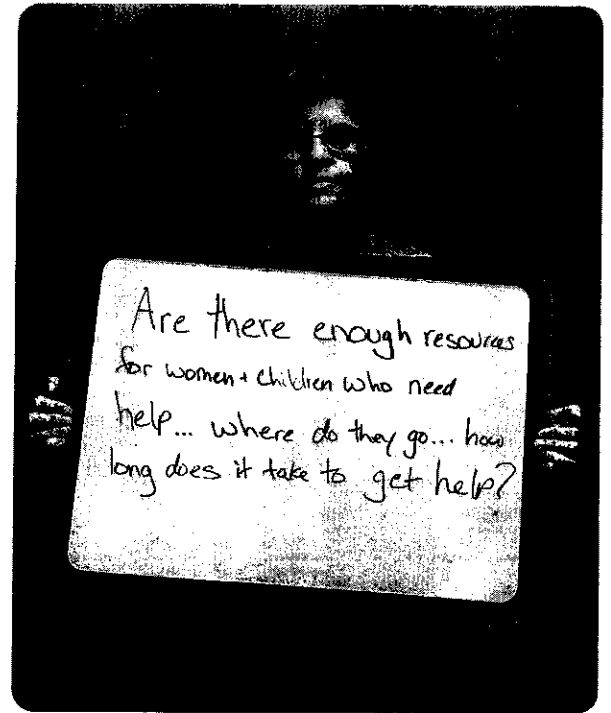 Are there enough resources
for women + children who need
help... where do they go... how
long does it take to get help?